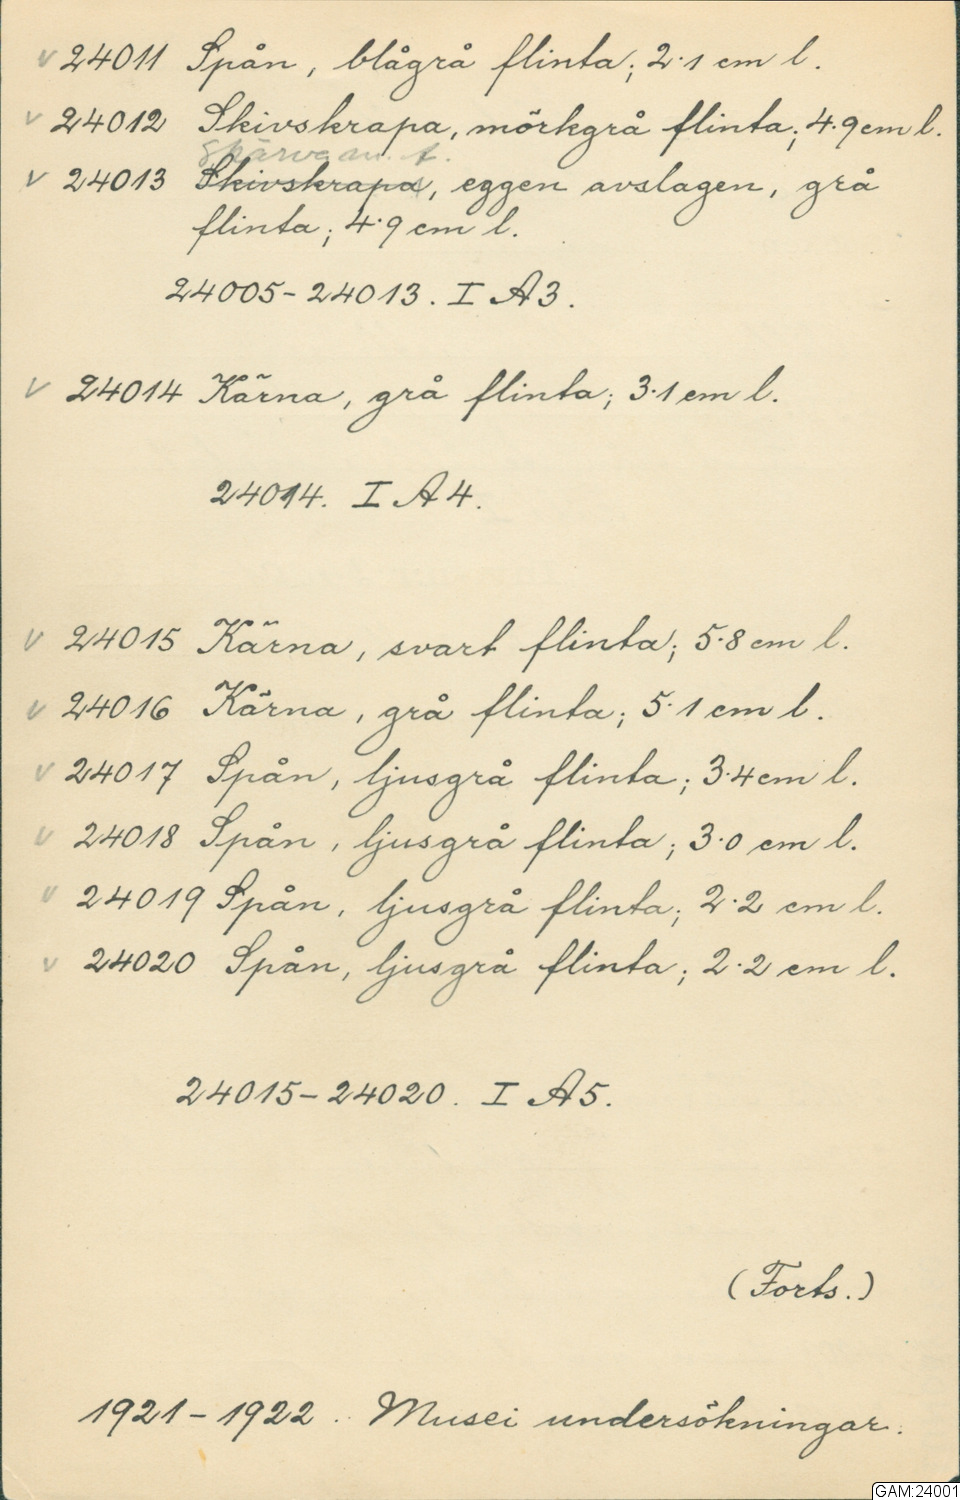 v 24011 Spån, blågrå flinta; 2.1 cm l.
v 24012 Skivskrapa, mörkgrå flinta; 4.9 cm l.
Skärva av f.
v 24013 Skivskrapa, eggen avslagen, grå
flinta; 4.9 cm l.
24005-24013. I A3.
v 24014 Kärna, grå flinta; 3.1 cm l.
24014. I A4.
v 24015 Kärna, svart flinta; 5.8 cm l.
v 24016 Kärna, grå flinta; 5.1 cm l.
v 24017 Spån, ljusgrå flinta; 3.4 cm l.
v 24018 Spån, ljusgrå flinta; 3.0 cm l.
v 24019 Spån, ljusgrå flinta; 2.2 cm l.
v 24020 Spån, ljusgrå flinta; 2.2 cm l.
24015-24020. I A5.
(Forts.)
1921-1922. Musei undersökningar.
GAM:24001